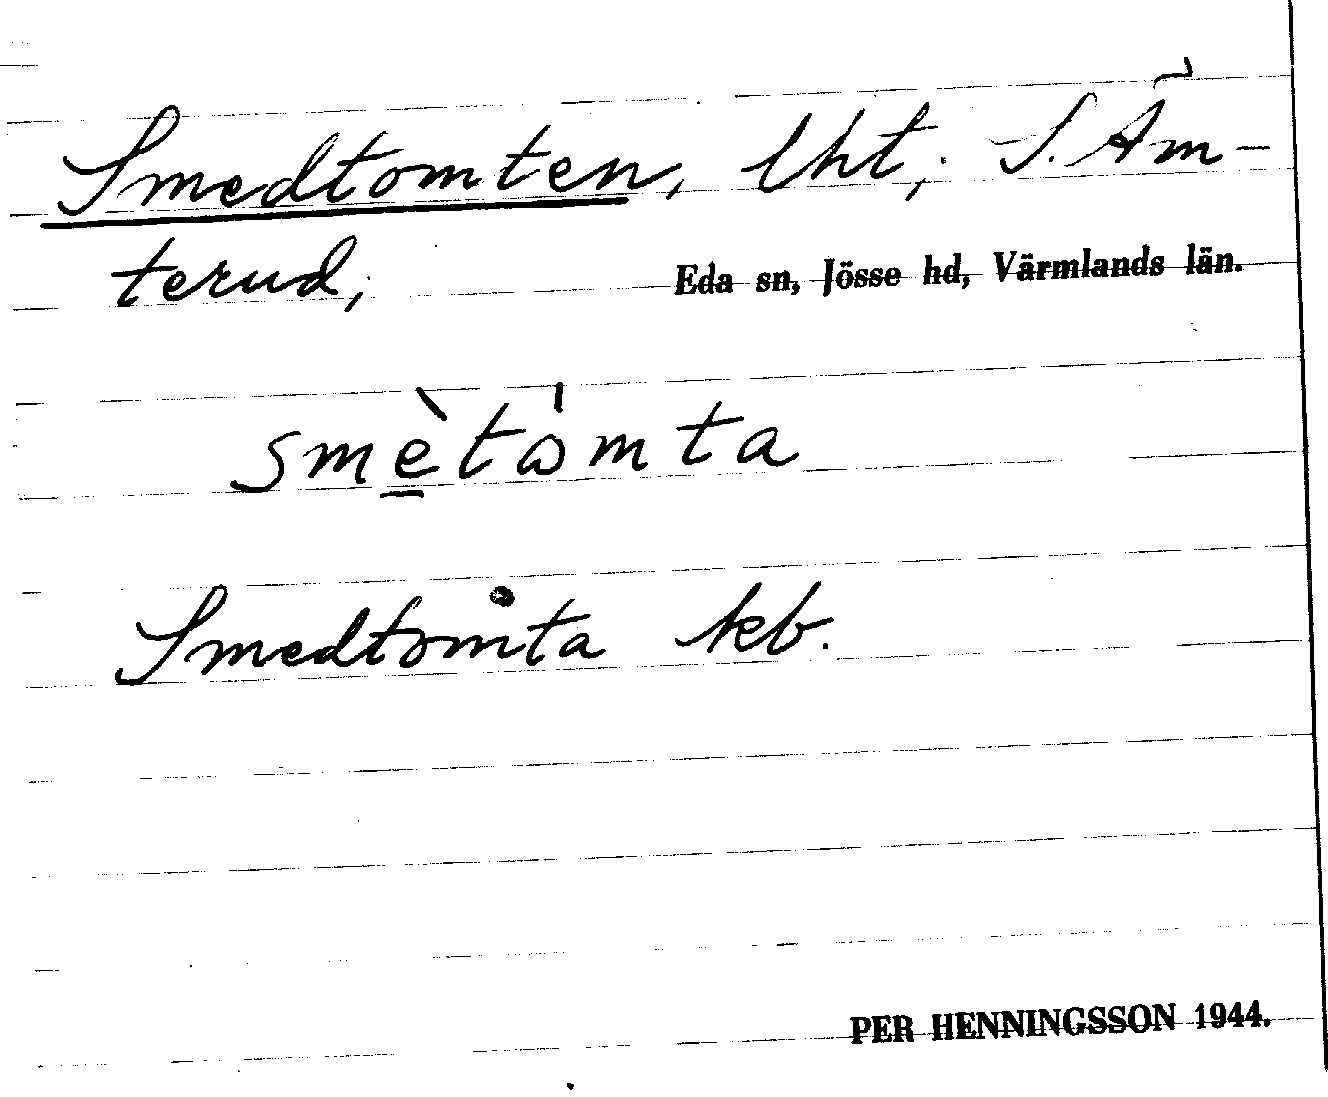 Smedtomten, lht, S. Äm-
terud,
Eda sn, Jösse hd, Värmlands län.
smètòmta
Smedtomta kb.
PER HENNINGSSON 1944.